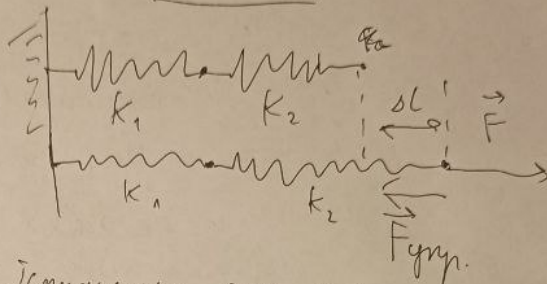 K₁ K₂
Δl
F
K₁ K₂
Fупр.